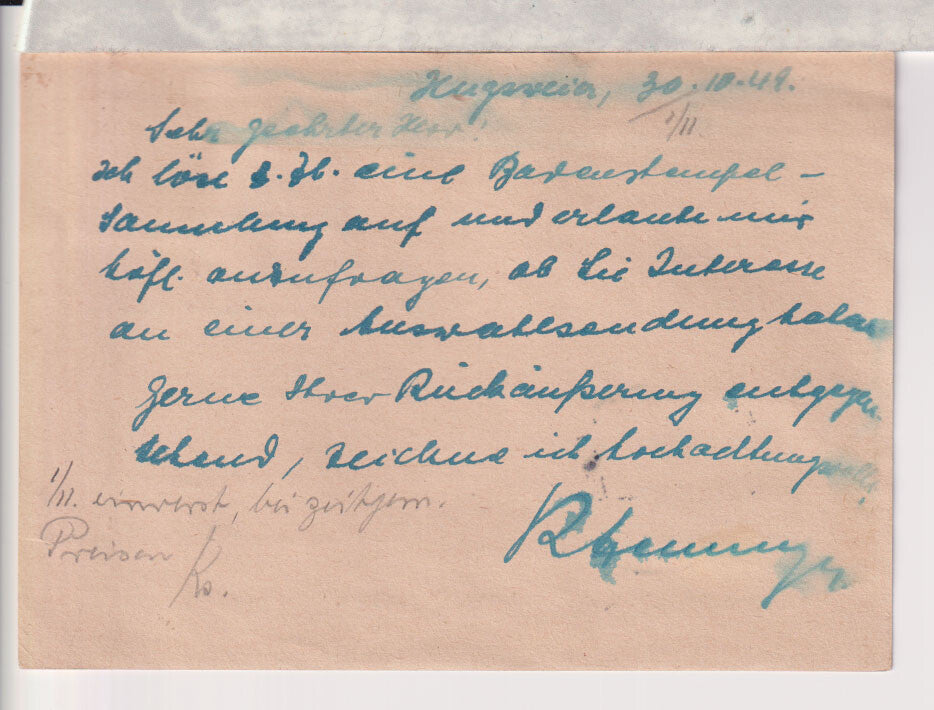 Hugsweier, 30.10.49.
1/11.
Sehr geehrter Herr!
Ich löse z. Zt. eine Badenstempel-
sammlung auf und erlaube mir
höfl. anzufragen, ob Sie Interesse
an einer Auswahlsendung haben
Gerne Ihrer Rückäußerung entgegen
sehend, zeichne ich hochachtungsvoll!
1/11. bei zeitgem.
Preisen
Ko.